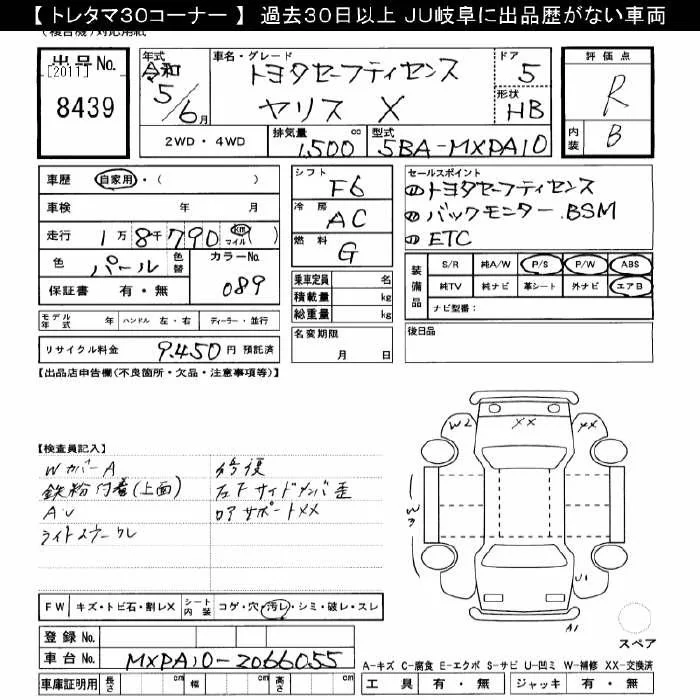 【 トレタマ30コーナー 】 過去30日以上 JU岐阜に出品歴がない車両
出品No.
[2011]
8439
年式
令和
5/6月
車名・グレード
トヨタセーフティセンス
ヤリス X
ドア
5
形状
HB
評価点
R
内装
B
2WD・4WD
排気量 cc
1,500
型式
5BA-MXPA10
車歴 自家用・( )
車検 年 月
走行 1万8千790 km マイル
色 パール 色替
カラーNo.
089
保証書 有・無
モデル年式 年 ハンドル 左・右 ディーラー・並行
リサイクル料金 9,450円 預託済
シフト
F6
冷房
AC
燃料
G
乗車定員 名
積載量 kg
総重量 kg
名変期限
月 日
セールスポイント
① トヨタセーフティセンス
② バックモニター.BSM
③ ETC
装備品
S/R 純A/W P/S P/W ABS
純TV 純ナビ 革シート 外ナビ エアB
ナビ型番:
後日品
【出品店申告欄(不良箇所・欠品・注意事項等)】
【検査員記入】
Wカバー A
鉄粉付着(上面)
AU
修復
右下サイドメンバ歪
ロアサポートXX
W2
XX
XX
W3
U1
A1
スペア
FW キズ・トビ石・割レX
シート内装 コゲ・穴・汚レ・シミ・破レ・スレ
登録No.
車台No. MXPA10-2066055
車庫証明用 長さ cm 幅 cm 高さ cm
A-キズ C-腐食 E-エクボ S-サビ U-凹ミ W-補修 XX-交換済
工具 有・無 ジャッキ 有・無